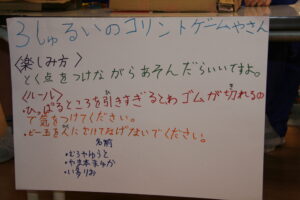 3しゅるいのコリントゲームやさん
〈楽しみ方〉
とく点をつけながらあそんだらいいですよ。
〈ルール〉
・ひっぱるところを引きすぎるとわゴムが切れるの
で気をつけてください。
・ビー玉を人にむけてなげないでください。
名前